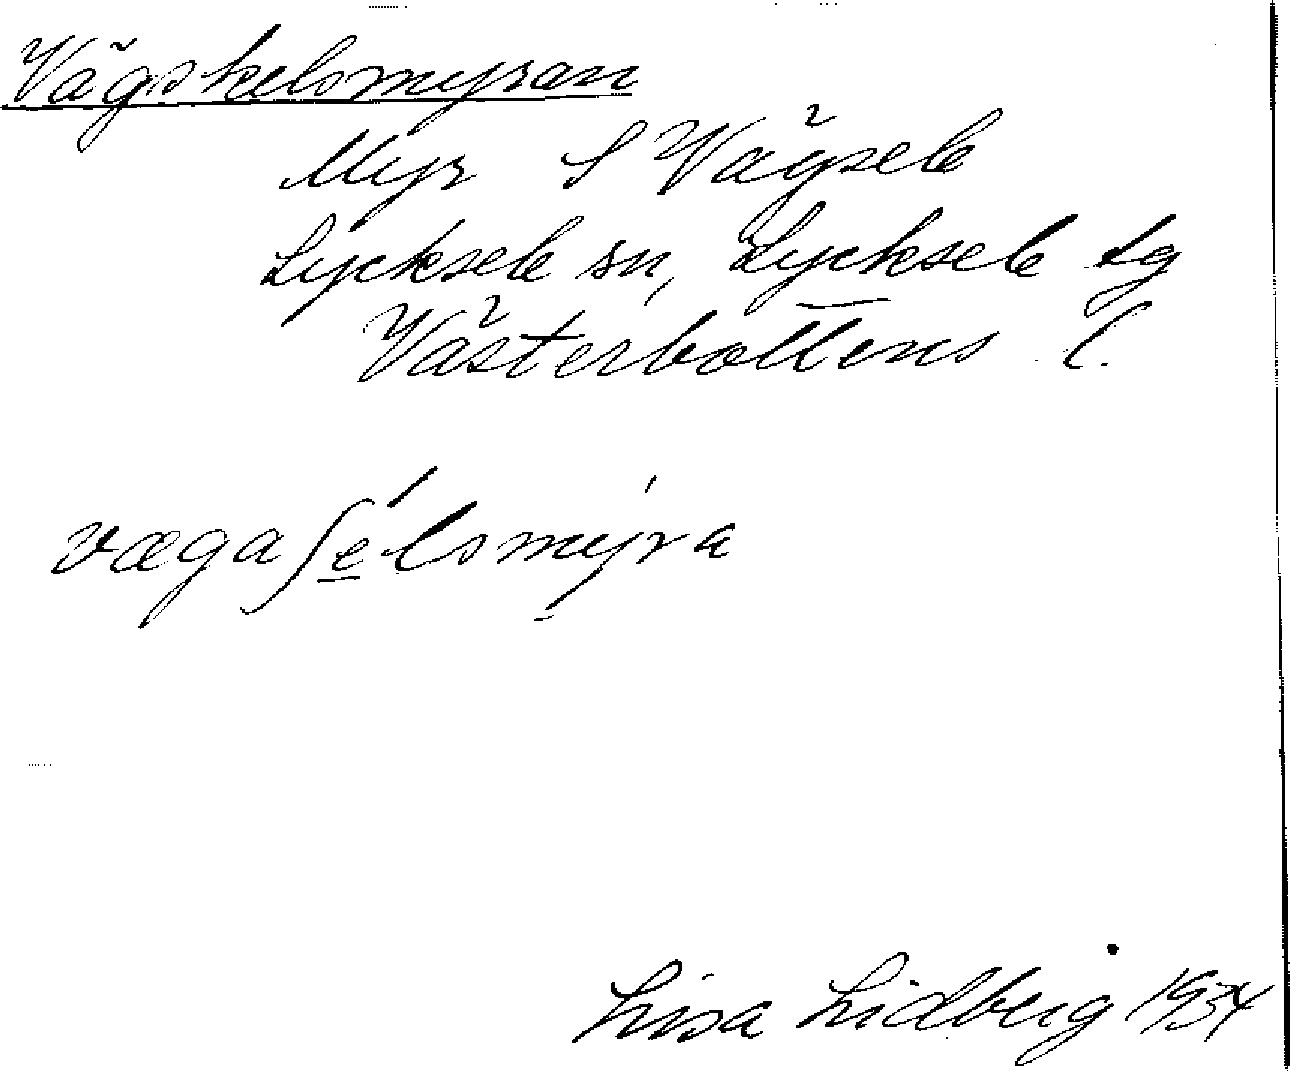 Vägskelsmyran
Myr S Vägsele
Lycksele sn, Lycksele tg
Västerbottens l.
vægaʃe̲´lsmy̠´ra
Lisa Lidberg 1934